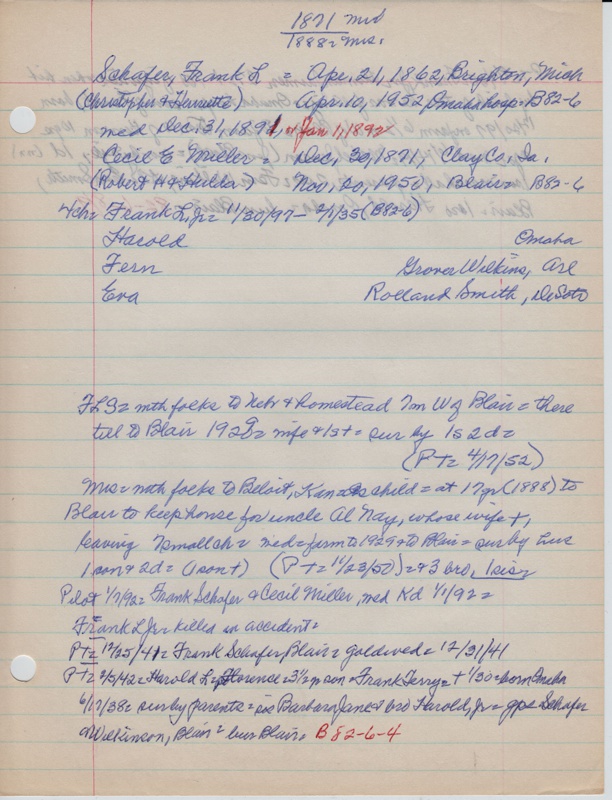 1871 mrd
1888 = mrs.
Schafer, Frank L = Apr. 21, 1862, Brighton, Mich
(Christopher & Henrietta) Apr. 10, 1952 Omaha hosp = B82-6
med Dec. 31, 1891, or Jan 1, 1892
Cecil E Miller = Dec, 30, 1871, Clay Co, Ia.
(Robert H & Hulda ) Nov, 20, 1950, Blair = B82-6
4ch = Frank L, Jr = 11/30/97 - 2/1/35 (B82-6)
Harold Omaha
Fern Grover Wilkins, Arl
Eva Rolland Smith, DeSoto
FLS = with folks to Nebr & homestead 7m W of Blair = there
till to Blair 1929 = wife & 1s + = sur by 1s 2d =
(PT = 4/17/52)
Mrs = with folks to Beloit, Kan = as child = at 17yr (1888) to
Blair to keep house for uncle Al Nay, whose wife +,
leaving 7 small ch = med = farm to 1929 & to Blair = sur by hus
1 son & 2d = (1 son +) (PT = 11/23/50) = & 3 bro, 1 sis =
Pilot 1/7/92 = Frank Schafer & Cecil Miller, med Kd 1/1/92 =
Frank L Jr = killed in accident =
PT = 12/25/41 = Frank Schafer, Blair = gold wed = 12/31/41
PT = 2/5/42 = Harold L = Florence = 3½ yr son = Frank Terry = + 1/30 = born Omaha
6/17/38 = sur by parents = sis Barbara Jane & bro Harold, Jr = gps Schafer
& Wilkinson, Blair = bur Blair = B 82-6-4